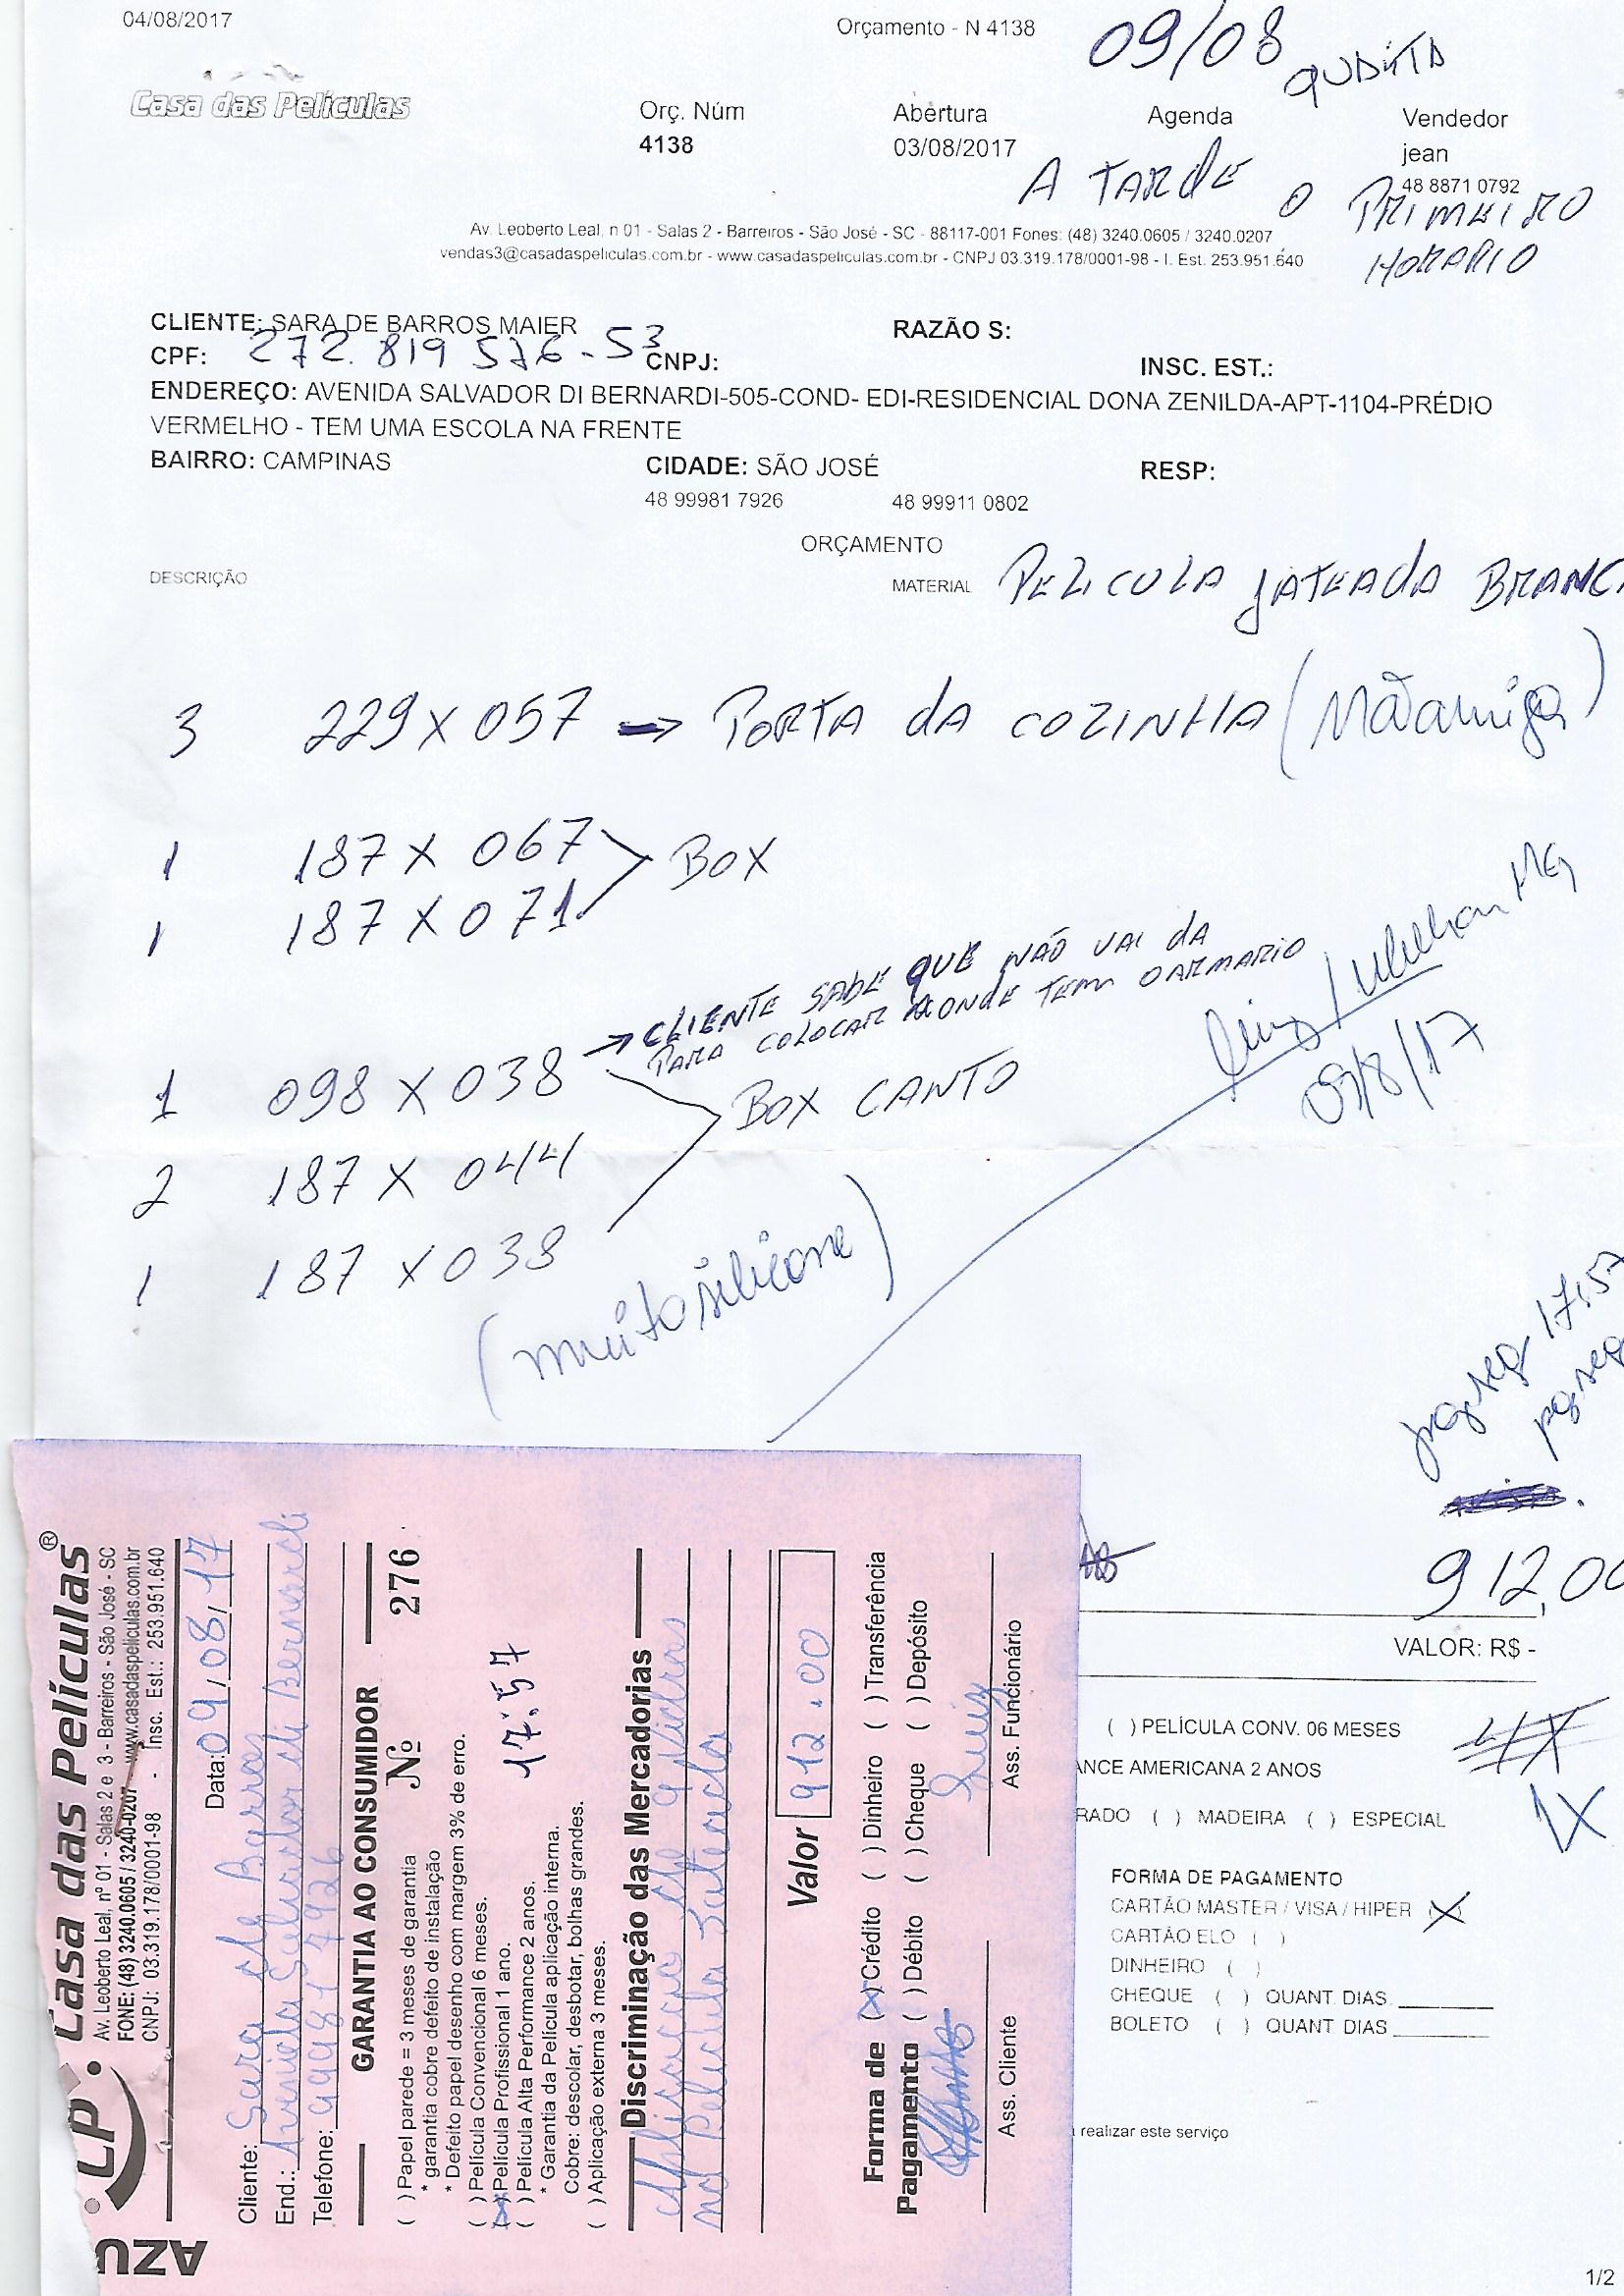 04/08/2017
Orçamento - N 4138
09/08
QUARTA
Casa das Películas
Orç. Núm
Abertura
Agenda
Vendedor
4138
03/08/2017
jean
48 8871 0792
A TARDE O PRIMEIRO
HORARIO
Av. Leoberto Leal, n 01 - Salas 2 - Barreiros - São José - SC - 88117-001 Fones: (48) 3240.0605 / 3240.0207
vendas3@casadaspeliculas.com.br - www.casadaspeliculas.com.br - CNPJ 03.319.178/0001-98 - I. Est. 253.951.640
CLIENTE: SARA DE BARROS MAIER
RAZÃO S:
CPF: 272.819 576-53 CNPJ:
INSC. EST.:
ENDEREÇO: AVENIDA SALVADOR DI BERNARDI-505-COND- EDI-RESIDENCIAL DONA ZENILDA-APT-1104-PRÉDIO
VERMELHO - TEM UMA ESCOLA NA FRENTE
BAIRRO: CAMPINAS
CIDADE: SÃO JOSÉ
RESP:
48 99981 7926
48 99911 0802
ORÇAMENTO
DESCRIÇÃO
MATERIAL PELICULA JATEADA BRANC
3 229 X 057 → PORTA DA COZINHA (Mãoamiga)
1 187 X 067
BOX
1 187 X 071
→ CLIENTE SABE QUE NÃO VAI DA
PARA COLOCAR AONDE TEM OARMARIO
1 098 X 038
BOX CANTO
2 187 X 044
1 187 X 038
(muito silicone)
Luiz
09/8/17
pagseg 17:57
pagseg
912,00
VALOR: R$ -
( ) PELÍCULA CONV. 06 MESES
4X
ANCE AMERICANA 2 ANOS
1X
RADO ( ) MADEIRA ( ) ESPECIAL
FORMA DE PAGAMENTO
CARTÃO MASTER / VISA / HIPER (X)
CARTÃO ELO ( )
DINHEIRO ( )
CHEQUE ( ) QUANT DIAS
BOLETO ( ) QUANT DIAS
realizar este serviço
1/2
AZU
LP
Casa das Películas®
Av. Leoberto Leal, nº 01 - Salas 2 e 3 - Barreiros - São José - SC
FONE: (48) 3240.0605 / 3240-0207 www.casadaspeliculas.com.br
CNPJ: 03.319.178/0001-98 - Insc. Est.: 253.951.640
Data: 09/08/17
Cliente: Sara de Barros
End.: Avenida Salvador di Bernardi
Telefone: 99981 7926
GARANTIA AO CONSUMIDOR
( ) Papel parede = 3 meses de garantia
Nº 276
* garantia cobre defeito de instalação
* Defeito papel desenho com margem 3% de erro.
( ) Película Convencional 6 meses.
(X) Película Profissional 1 ano.
17:57
( ) Película Alta Performance 2 anos.
* Garantia da Película aplicação interna.
Cobre: descolar, desbotar, bolhas grandes.
( ) Aplicação externa 3 meses.
Discriminação das Mercadorias
Aplicação de 9 vidros
na Pelicula Jateada
Valor 912.00
Forma de Pagamento
(X) Crédito ( ) Dinheiro ( ) Transferência
( ) Débito ( ) Cheque ( ) Depósito
Luiz
Ass. Cliente
Ass. Funcionário